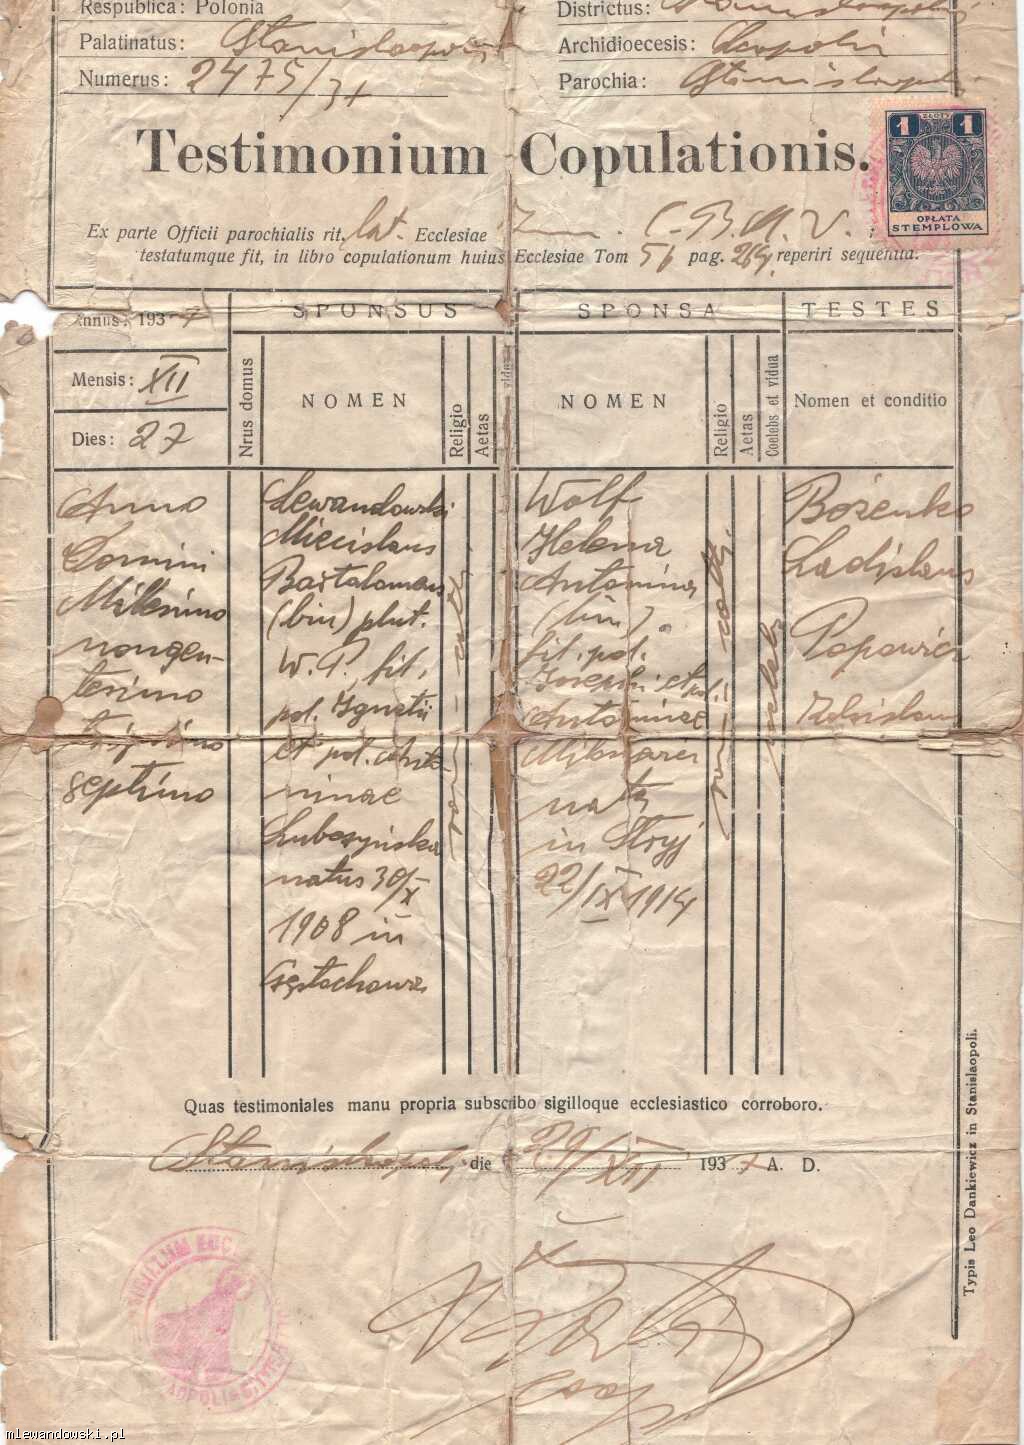 Respublica: Polonia
Districtus: Stanislaopoli
Palatinatus: Stanislaopoli
Archidioecesis: Leopolis
Numerus: 2475/37
Parochia: Stanislaopoli
Testimonium Copulationis.
1 ZŁOTY 1
OPŁATA
STEMPLOWA
Ex parte Officii parochialis rit. lat. Ecclesiae Im. C. B. M. V.
testatumque fit, in libro copulationum huius Ecclesiae Tom pag. reperiri sequentia:
Annus: 1937
Mensis: XII
Dies: 27
SPONSUS
SPONSA
TESTES
Nrus domus
NOMEN
Religio
Aetas
vidua
NOMEN
Religio
Aetas
Coelebs et vidua
Nomen et conditio
Anno
Domini
Millesimo
nongen-
tesimo
trigesimo
septimo
Lewandowski
Miecislaus
Bartolomaeus
(bin) plut.
W. P. fil.
pol. Ignatii
et pol. Anto-
ninae
Lubczyńska
natus 30/X
1908 in
Częstochowa
rom - cath.
Wolf
Helena
Antonina
(bin)
fil. pol.
Josephi et pol.
Antoninae
nata
in Stryj
22/IX 1914
rom - cath.
coelebs
Bożenko
Ladislaus
Popowicz
Zdzislaus
Quas testimoniales manu propria subscribo sigilloque ecclesiastico corroboro.
Stanislaopoli die 29/XII 1937 A. D.
Typis Leo Dankiewicz in Stanislaopoli.
mlewandowski.pl